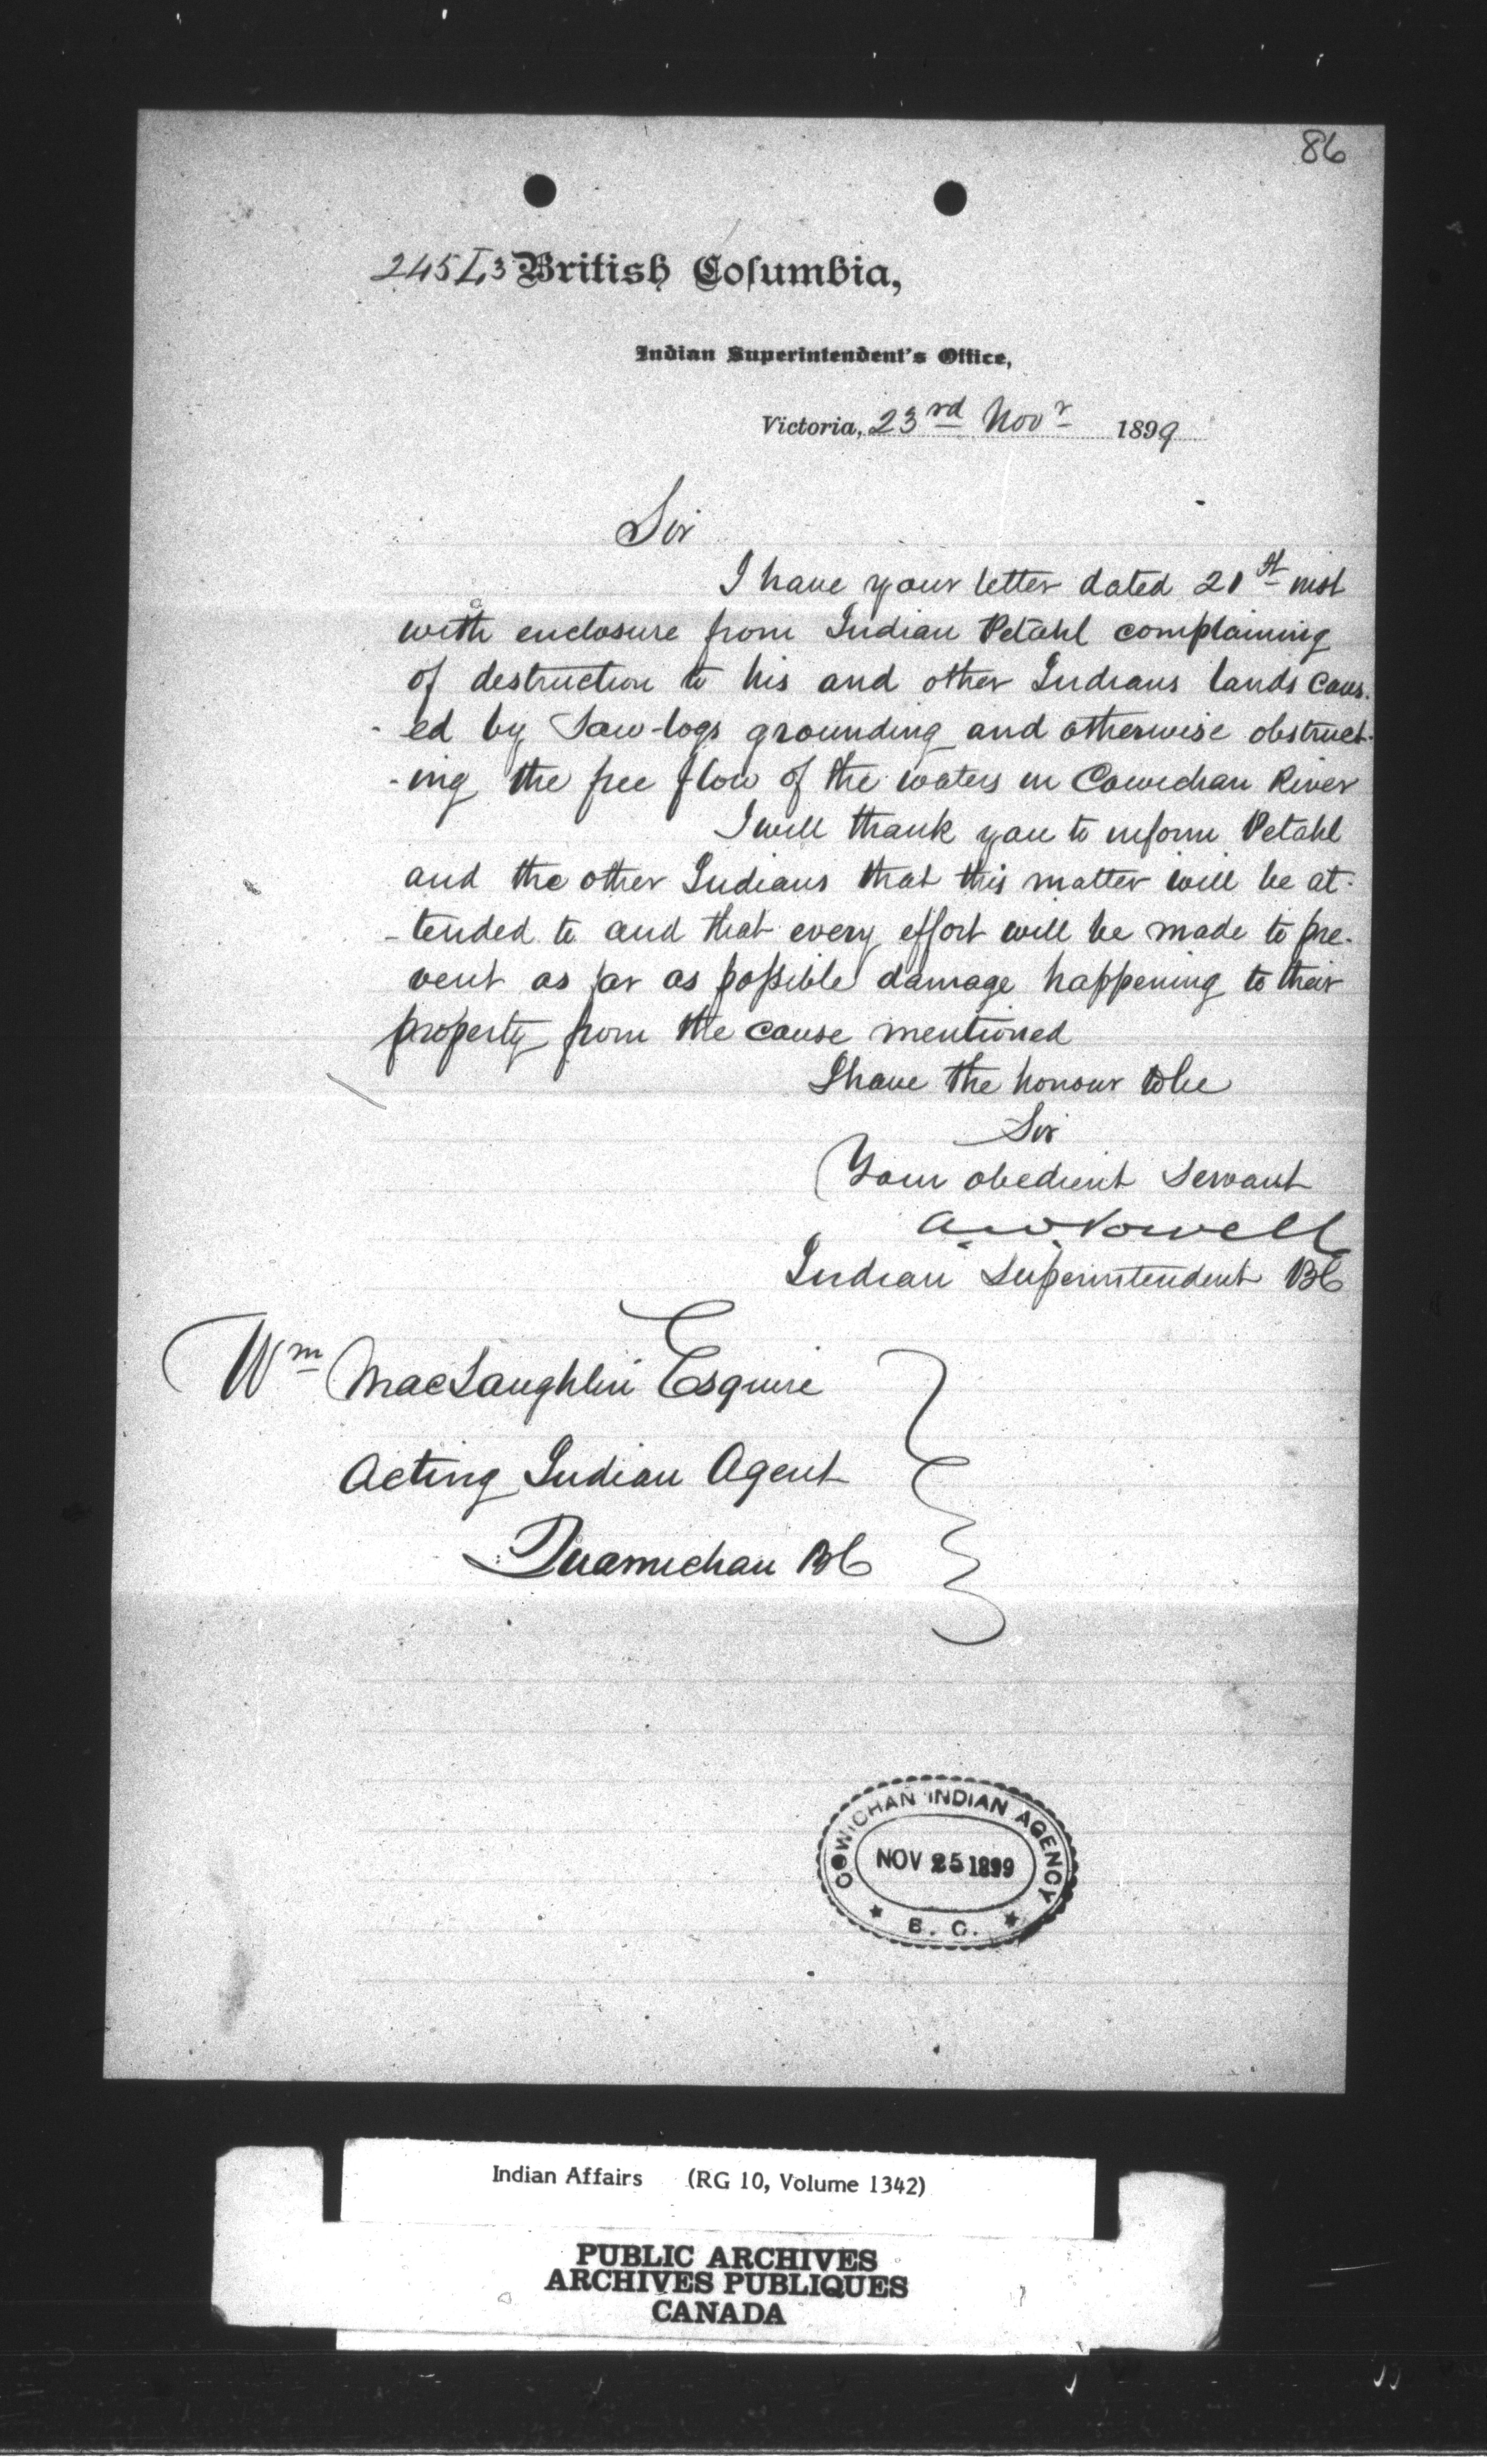 86
245 I,3 British Columbia,
Indian Superintendent's Office,
Victoria, 23rd Novr 1899
Sir
I have your letter dated 21st inst
with enclosure from Indian Petahl complaining
of destruction to his and other Indians lands caus-
-ed by Saw-logs grounding and otherwise obstruct-
-ing the free flow of the waters in Cowichan River
I will thank you to inform Petahl
and the other Indians that this matter will be at-
-tended to and that every effort will be made to pre-
vent as far as possible damage happening to their
property from the cause mentioned
I have the honour to be
Sir
Your obedient Servant
A. W. Vowell
Indian Superintendent BC
Wm MacLaughlin Esquire
Acting Indian Agent
Quamichan BC
COWICHAN INDIAN AGENCY
NOV 25 1899
B. C.
Indian Affairs (RG 10, Volume 1342)
PUBLIC ARCHIVES
ARCHIVES PUBLIQUES
CANADA